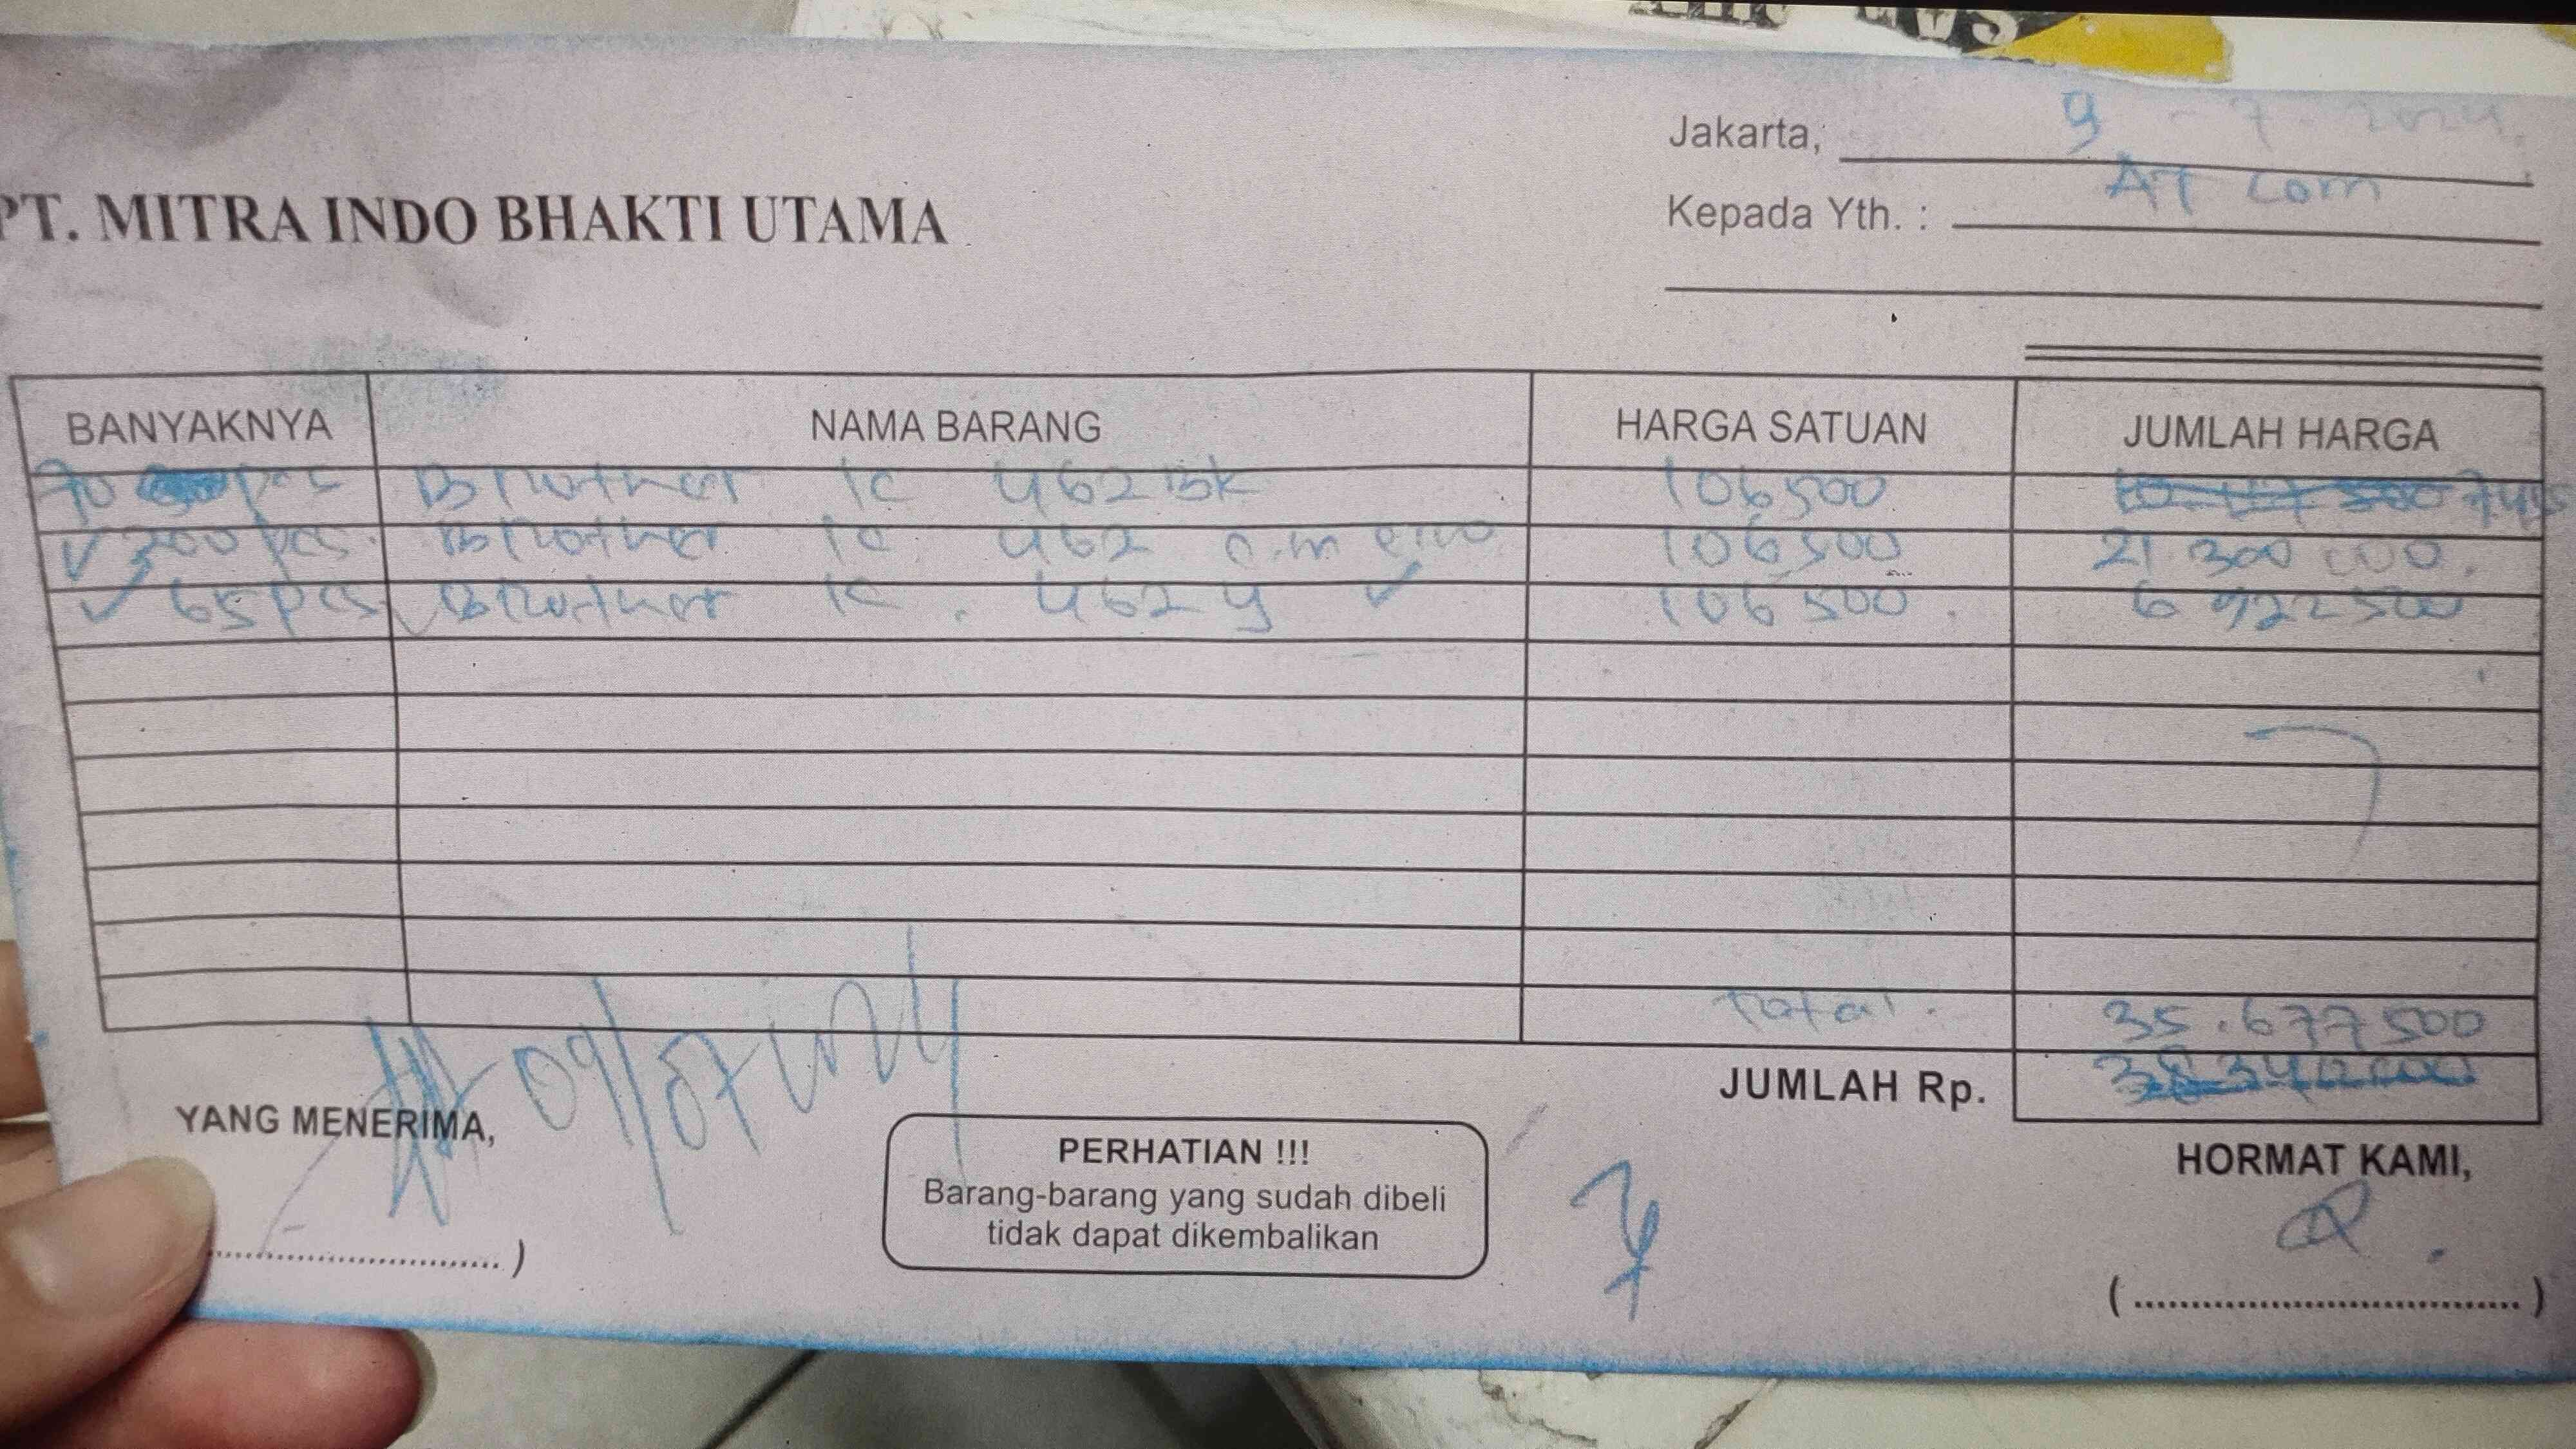 Jakarta, 9 - 7 - 2024
PT. MITRA INDO BHAKTI UTAMA
Kepada Yth. : AT com
BANYAKNYA NAMA BARANG HARGA SATUAN JUMLAH HARGA
70 pcs Brother lc 462 BK 106500
200 pcs. Brother lc 462 106500 21 300 000.
65 pcs Brother lc. 462 y 106 500. 6 922500
Total. 35.677 500
JUMLAH Rp.
YANG MENERIMA,
PERHATIAN !!!
Barang-barang yang sudah dibeli
tidak dapat dikembalikan
HORMAT KAMI,